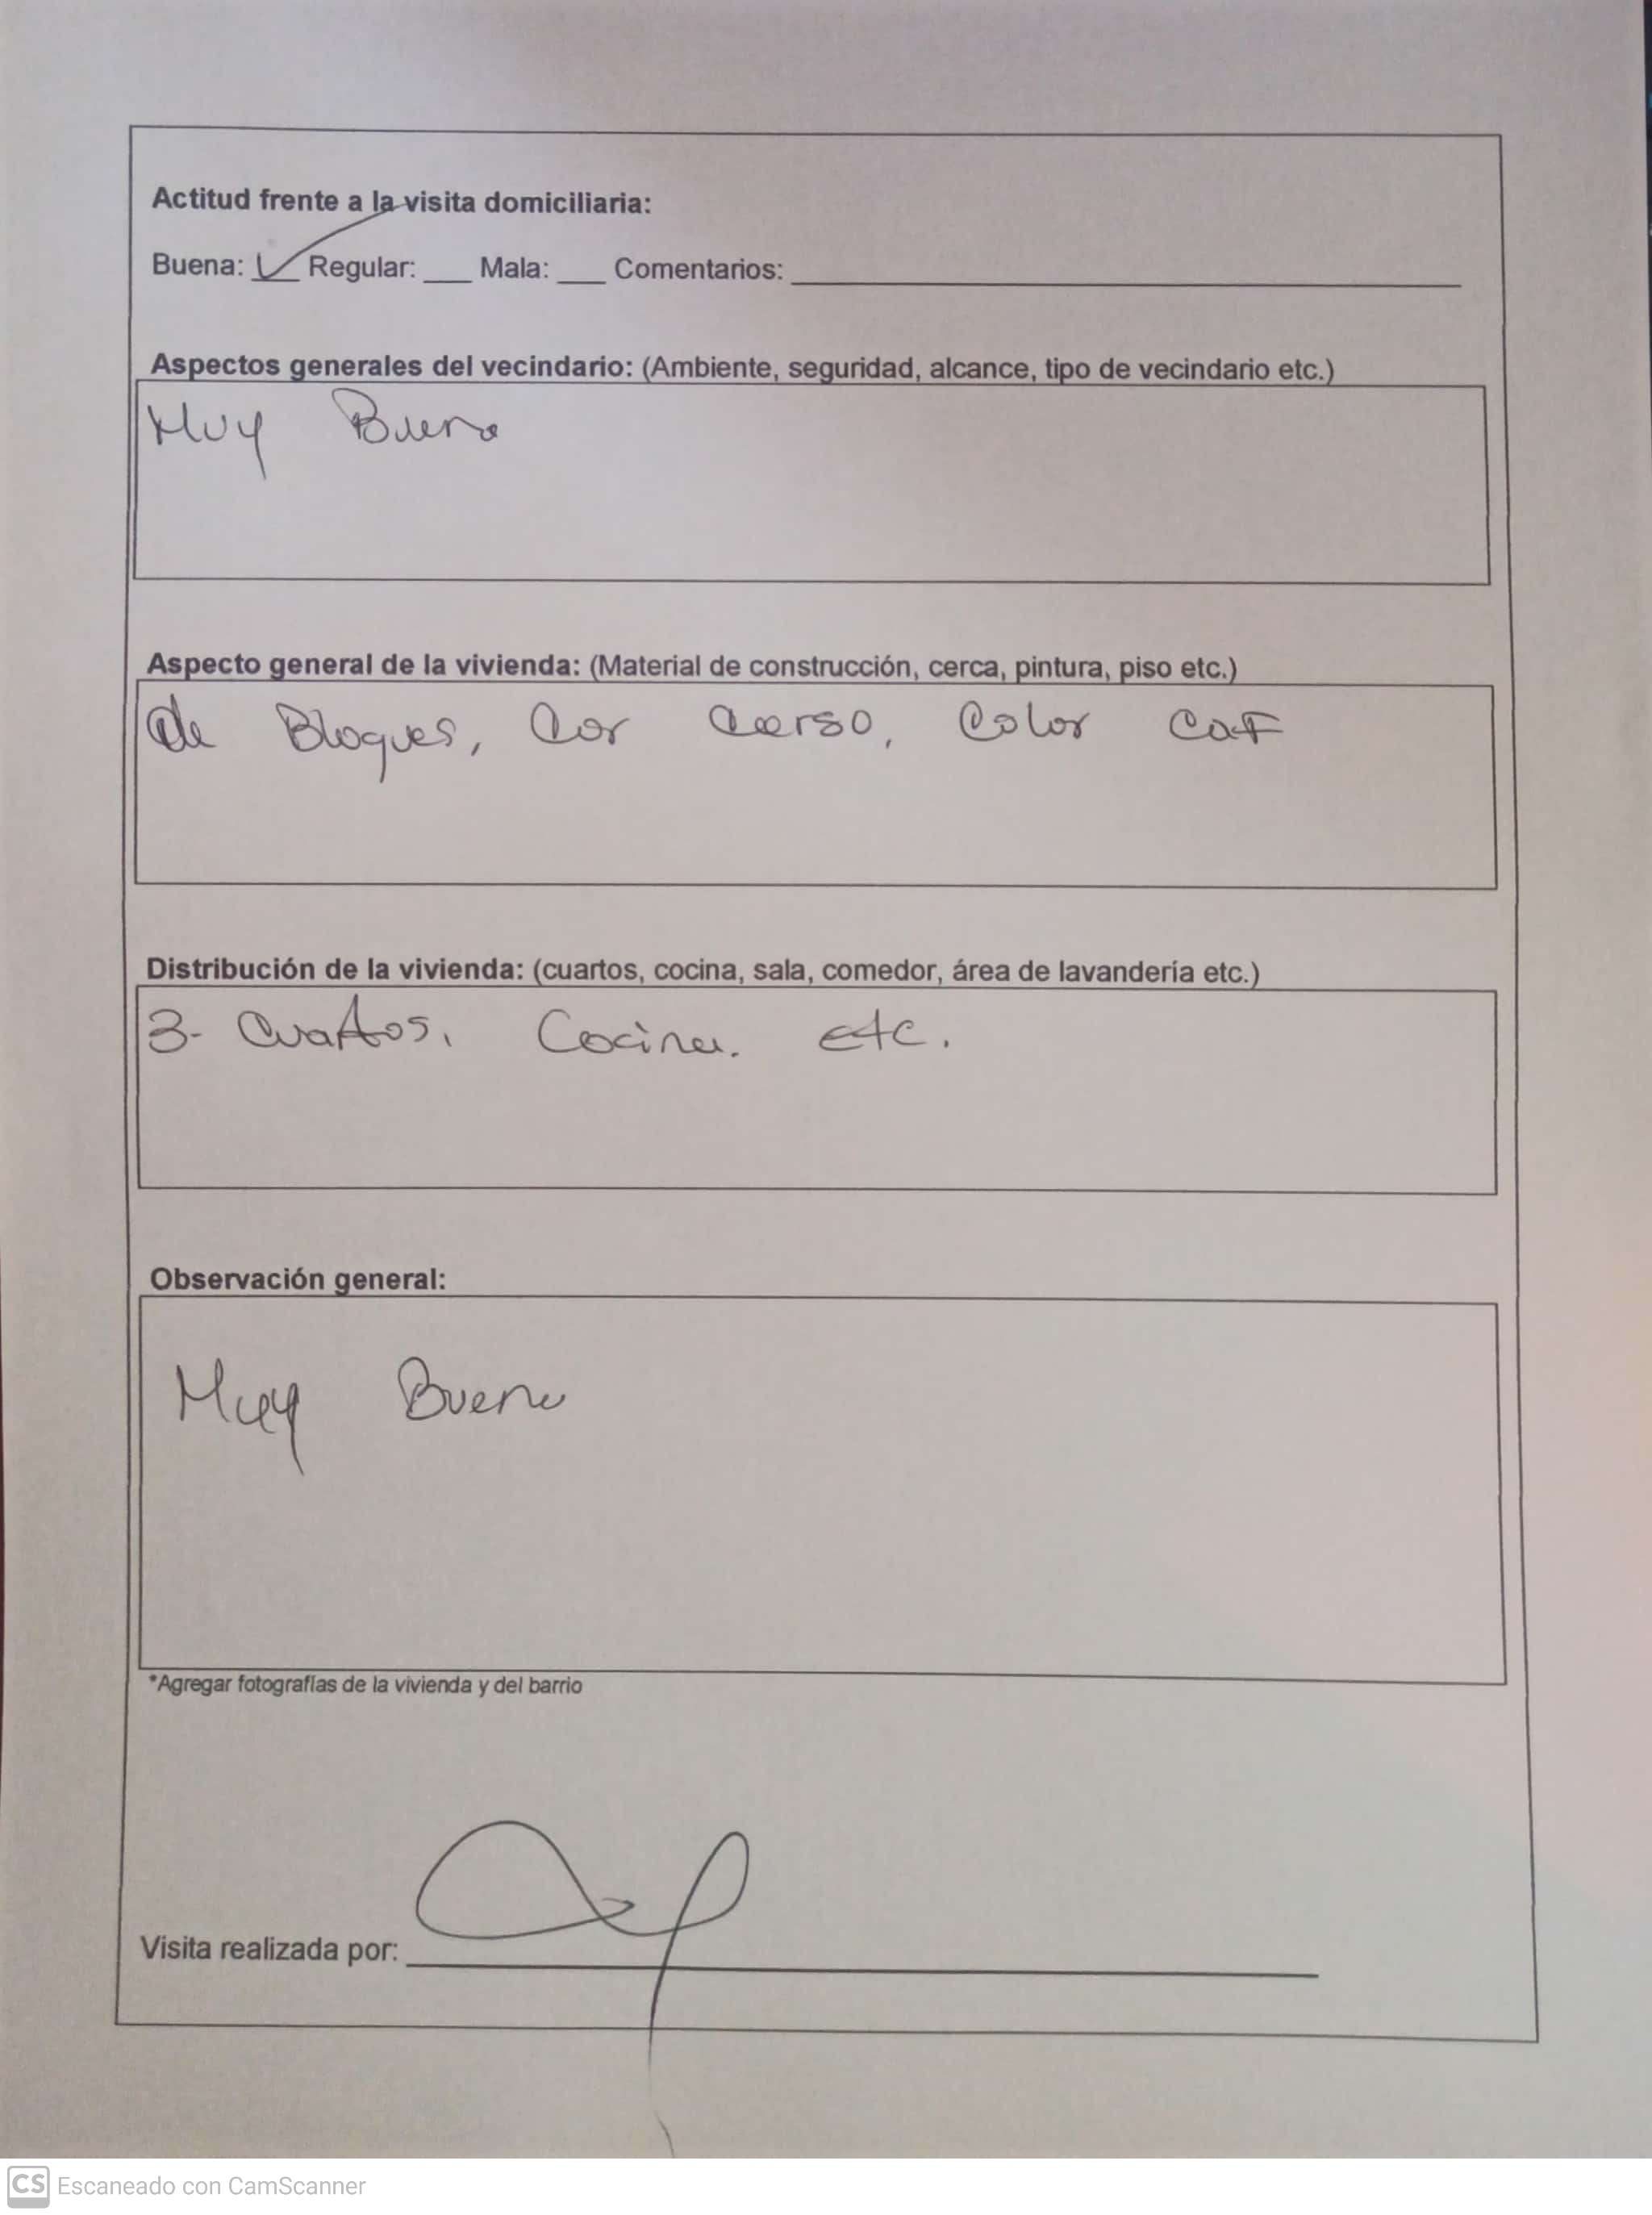 Actitud frente a la visita domiciliaria:
Buena: ✓ Regular: ___ Mala: ___ Comentarios: ___
Aspectos generales del vecindario: (Ambiente, seguridad, alcance, tipo de vecindario etc.)
Muy Buena
Aspecto general de la vivienda: (Material de construcción, cerca, pintura, piso etc.)
de Bloques, Color
Distribución de la vivienda: (cuartos, cocina, sala, comedor, área de lavandería etc.)
3- Cuartos, Cocina. etc.
Observación general:
Muy
*Agregar fotografías de la vivienda y del barrio
Visita realizada por:
CS Escaneado con CamScanner